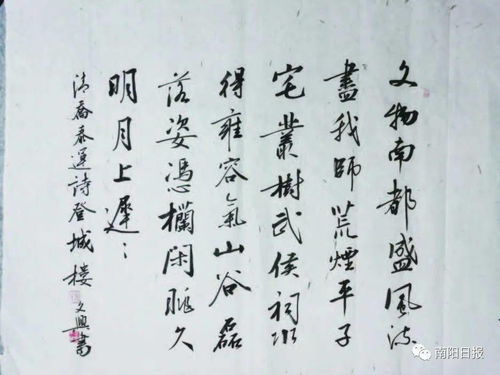 文物南都盛風流
盡我師荒煙平子
宅叢樹武侯祠水
得雍容氣山谷磊
落姿憑欄閑眺久
明月上遲:
清喬泰運詩登城樓 文興書
南阳日报